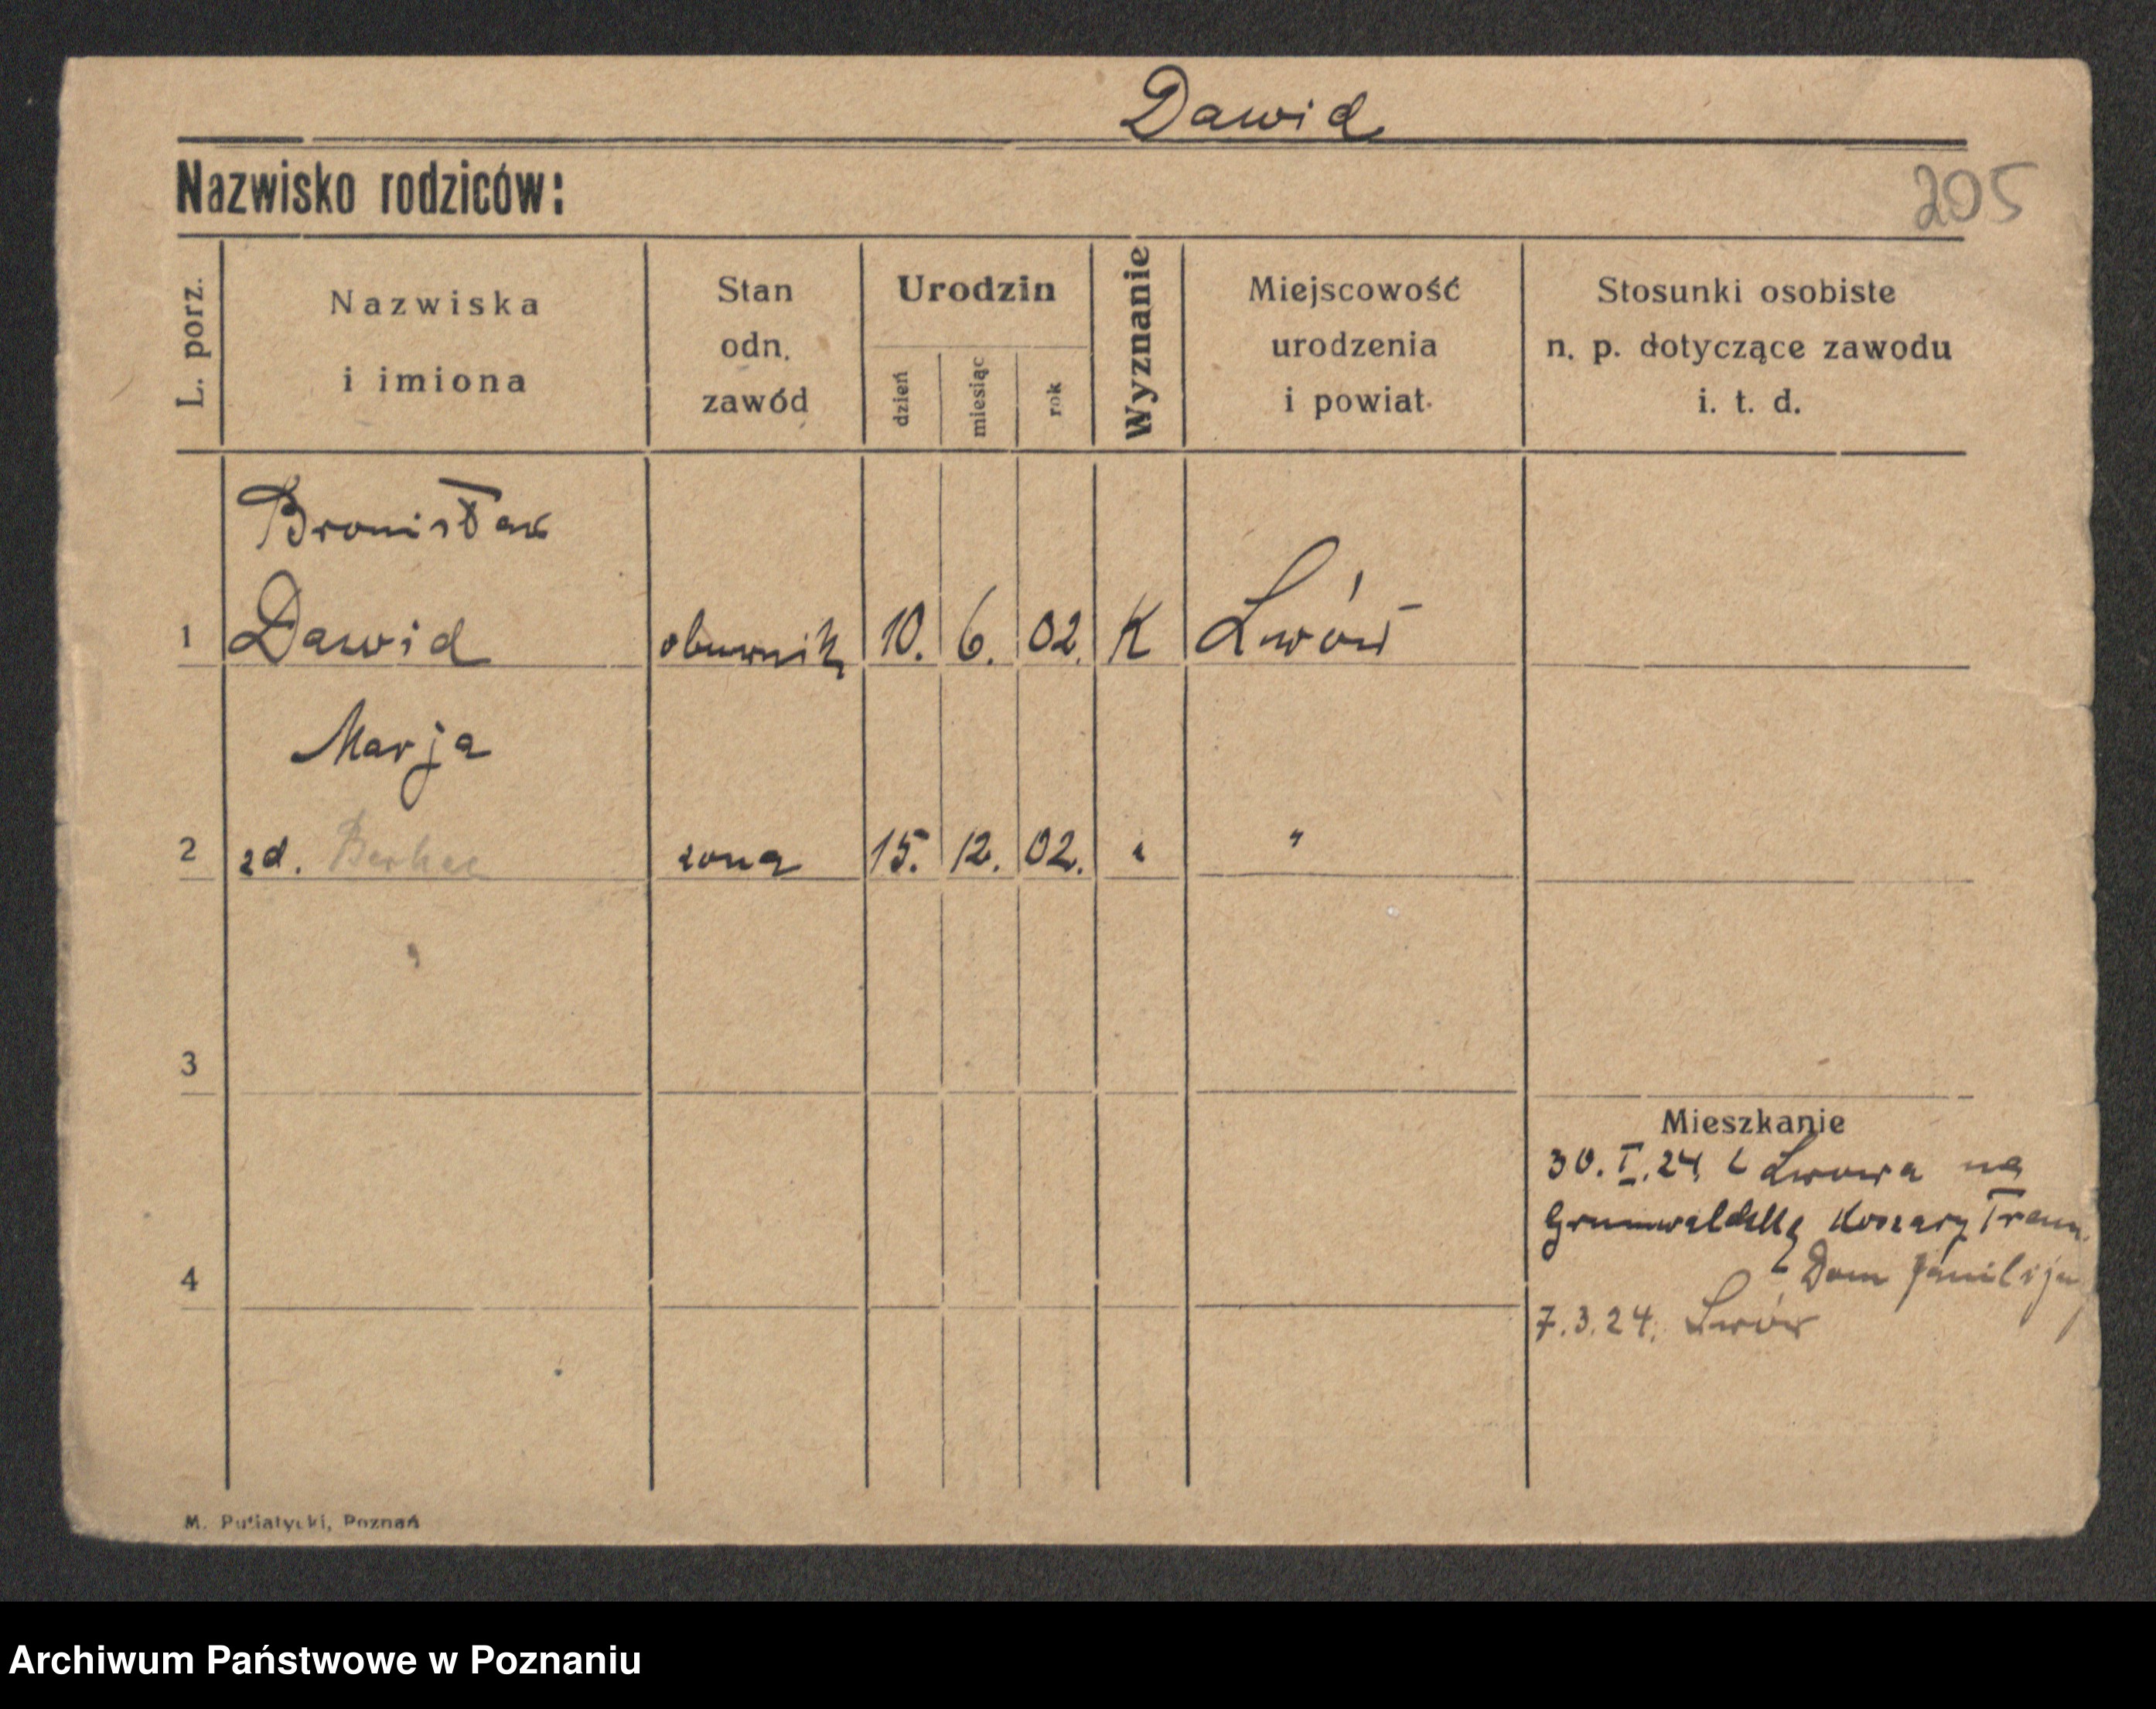 Dawid
Nazwisko rodziców:
205
L. porz.
Nazwiska
i imiona
Stan
odn.
zawód
Urodzin
dzień
miesiąc
rok
Wyznanie
Miejscowość
urodzenia
i powiat
Stosunki osobiste
n. p. dotyczące zawodu
i. t. d.
Bronisław
1 Dawid obuwnik 10. 6. 02. K Lwów
Marja
2 zd. żona 15. 12. 02. " "
3
Mieszkanie
30. I. 24 z Lwowa na
Grunwaldzką Koszary
4
Dom
7.3.24. Lwów
M. Putiatycki, Poznań
Archiwum Państwowe w Poznaniu